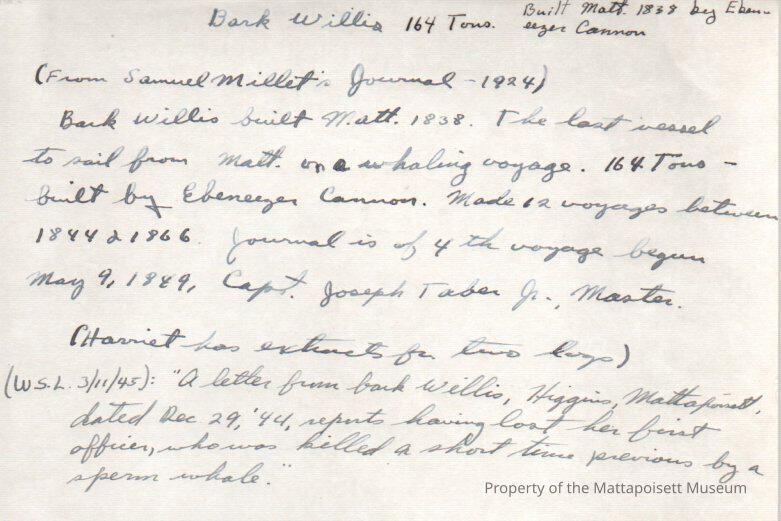 Bark Willis 164 Tons. Built Matt. 1838 by Eben-
eezer Cannon
(From Samuel Millet's Journal - 1924)
Bark Willis built Matt. 1838. The last vessel
to sail from Matt. on a whaling voyage. 164 Tons -
built by Ebeneezer Cannon. Made 12 voyages between
1844 & 1866. Journal is of 4th voyage begun
May 9, 1849, Capt. Joseph Taber Jr., Master.
(Harriet has extracts fr two logs)
(W.S.L. 3/11/45): "A letter from bark Willis, Higgins, Mattapoisett,
dated Dec 29, '44, reports having lost her first
officer, who was killed a short time previous by a
sperm whale."
Property of the Mattapoisett Museum